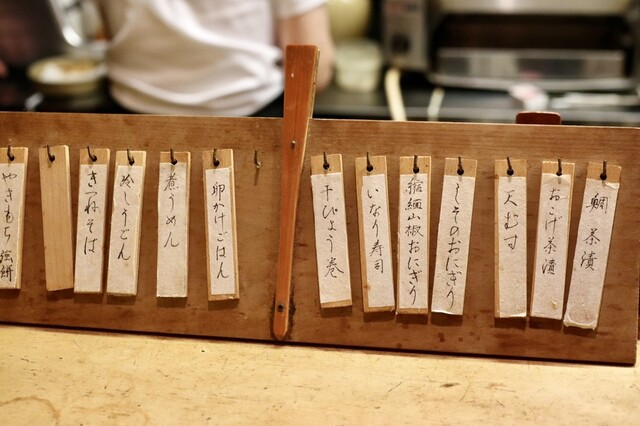 鯛茶漬
おこげ茶漬
天むす
しそのおにぎり
縮緬山椒おにぎり
いなり寿司
干ぴょう巻
卵かけごはん
煮うめん
冷しうどん
きつねそば
やきもち